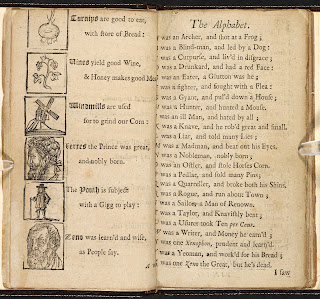 Turnips are good to eat,
with store of Bread:
Vines yield good Wine,
& Honey makes good
Windmills are used
for to grind our Corn:
the Prince was great,
and nobly born.
The Youth is subject
with a Gigg to play:
Zeno was learn'd and wise,
as People say.
The Alphabet.
was an Archer, and shot at a Frog;
was a Blind-man, and led by a Dog:
was a Cutpurse, and liv'd in disgrace;
was a Drunkard, and had a red Face:
was an Eater, a Glutton was he;
was a fighter, and fought with a Flea:
was a Gyant, and pul'd down a House;
was a Hunter, and hunted a Mouse.
was an ill Man, and hated by all;
was a Knave, and he rob'd great and small.
was a Liar, and told many Lies;
was a Madman, and beat out his Eyes.
was a Nobleman, nobly born;
was an Ostler, and stole Horses Corn.
was a Pedlar, and sold many Pins;
was a Quarreller, and broke both his Shins.
was a Rogue, and run about Town;
was a Sailor, a Man of Renown.
was a Taylor, and Knavishly bent;
was a Usurer took Ten per Cent.
was a Writer, and Money he earn'd;
was one Xenophon, prudent and learn'd.
was a Yeoman, and work'd for his Bread;
was one Zeno the Great, but he's dead.
I saw